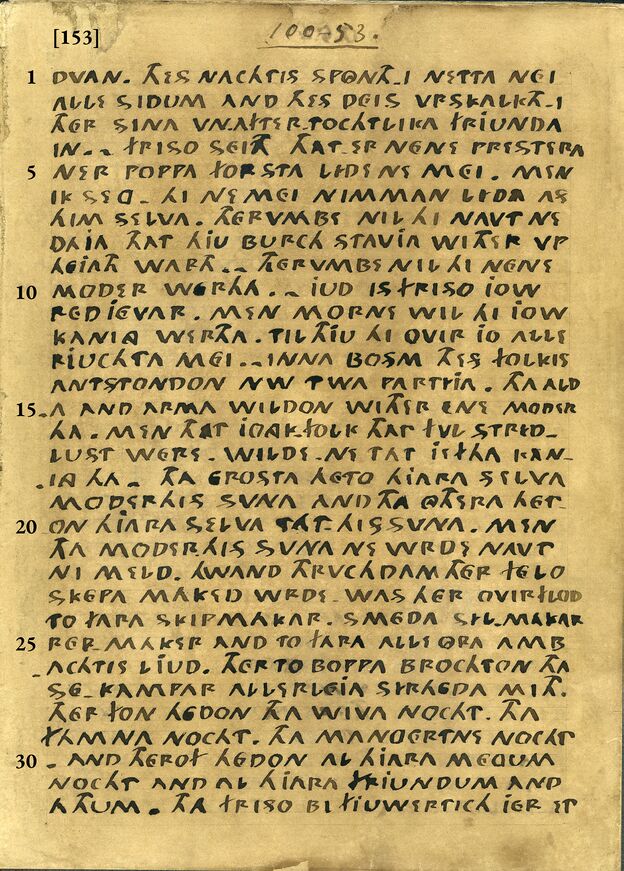 [153]
100453.
1 DVAN. THES NACHTIS SPONTH-I NETTA NEI
ALLE SIDUM AND THES DEIS VRSKALKTH-I
THER SINA VN.AFTER-TOCHTLIKA FRIUNDA
IN. - FRISO SEITH THAT-ER NENE PRESTERA
5 NER POPPA FORSTA LYDE NE MEI. MEN
IK SEG. HI NE MEI NIMMAN LYDA AS
HIM SELVA. THERVMBE NIL HI NAVT NE
DAJA THAT HJU BURCH STAVIA WITHER VP
HEJATH WARTH. - THERVMBE NIL HI NENE
10 MODER WERHA. - JUD IS FRISO JOW
REDJEVAR. MEN MORNE WIL HI JOW
KANIG WERTHA. TIL THJU HI OVIR JO ALLE
RIUCHTA MEI. - INNA BOSM THES FOLKIS
ANTSTONDON NW TWA PARTYJA. THA ALD
15 -A AND ARMA WILDON WITHER ENE MODER
HA. MEN THAT JONKFOLK THAT FVL STRED-
LUST WERE. WILDE-NE TAT JEFTHA KAN-
-IG HA. - THA EROSTA HETON HJARA SELVA
MODERHIS SUNA AND THA OTHERA HET-
20 ON HJARA SELVA TAT-HIS SUNA. MEN
THA MODERHIS SVNA NE WRDE NAVT
NI MELD. HWAND THRVCHDAM THER FELO
SKEPA MAKED WRDE. WAS HER OVIRFLOD
TO FARA SKIPMAKAR. SMEDA SYL-MAKAR
25 REP-MAKER AND TO FARA ALLE ORA AMB
-ACHTIS LJUD. THERTO BOPPA BROCHTON THA
SE-KAMPAR ALLERLEJA SYRHEDA MITH.
THER FON HEDON THA WIVA NOCHT. THA
FAMNA NOCHT. THA MANGERTNE NOCHT
30 - AND THEROF HEDON AL HJARA MEGUM
NOCHT AND AL HJARA FRIUNDUM AND
ATHUM. THA FRISO BI FIUWERTICH JER ET